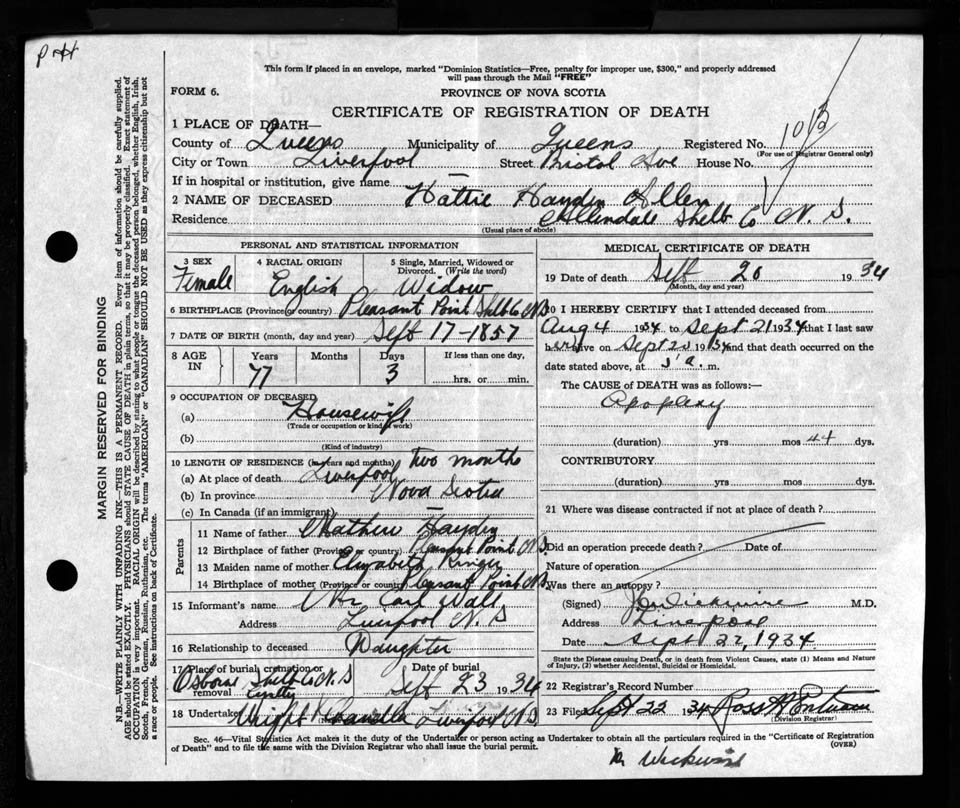 P H
This form if placed in an envelope, marked "Dominion Statistics—Free, penalty for improper use, $300," and properly addressed
will pass through the Mail "FREE"
FORM 6.
PROVINCE OF NOVA SCOTIA
CERTIFICATE OF REGISTRATION OF DEATH
1 PLACE OF DEATH—
County of Queens Municipality of Queens Registered No.
(For use of Registrar General only)
City or Town Liverpool Street Bristol Ave House No.
If in hospital or institution, give name —
2 NAME OF DECEASED Hattie Hayden Allen
Residence Allendale Shelb Co N. S.
(Usual place of abode)
PERSONAL AND STATISTICAL INFORMATION
3 SEX Female
4 RACIAL ORIGIN English
5 Single, Married, Widowed or Divorced. (Write the word) Widow
6 BIRTHPLACE (Province or country) Pleasant Point Shelb Co N.S
7 DATE OF BIRTH (month, day and year) Sept 17-1857
8 AGE IN Years 77 Months Days 3 If less than one day, hrs. or min.
9 OCCUPATION OF DECEASED
(a) Housewife
(Trade or occupation or kind of work)
(b)
(Kind of industry)
10 LENGTH OF RESIDENCE (in years and months) two months
(a) At place of death Liverpool
(b) In province Nova Scotia
(c) In Canada (if an immigrant) —
Parents
11 Name of father Mathew Hayden
12 Birthplace of father (Province or country) Pleasant Point N.S
13 Maiden name of mother Elizabeth Ringer
14 Birthplace of mother (Province or country) Pleasant Point N.S
15 Informant's name Mr Carl Wall
Address Liverpool N. S
16 Relationship to deceased Daughter
17 Place of burial cremation or removal Osborne Shelb Co N.S
Date of burial Sept 23 1934
18 Undertaker Wright Liverpool N.S
MEDICAL CERTIFICATE OF DEATH
19 Date of death Sept 20 1934
(Month, day and year)
20 I HEREBY CERTIFY that I attended deceased from
Aug 4 1934 to Sept 21 1934 that I last saw
her alive on Sept 20 1934 and that death occurred on the
date stated above, at 5 a. m.
The CAUSE of DEATH was as follows:—
Apoplexy
(duration) yrs mos 44 dys.
CONTRIBUTORY
(duration) yrs mos dys.
21 Where was disease contracted if not at place of death?
Did an operation precede death? Date of
Nature of operation
Was there an autopsy?
(Signed) Wickwire M.D.
Address Liverpool
Date Sept 22, 1934
State the Disease causing Death, or in death from Violent Causes, state (1) Means and Nature
of Injury, (2) whether Accidental, Suicidal or Homicidal.
22 Registrar's Record Number
23 Filed Sept 22 1934 Ross
(Division Registrar)
Sec. 46—Vital Statistics Act makes it the duty of the Undertaker or person acting as Undertaker to obtain all the particulars required in the "Certificate of Registration
of Death" and to file the same with the Division Registrar who shall issue the burial permit.
(OVER)
Dr Wickwire
MARGIN RESERVED FOR BINDING
N.B.—WRITE PLAINLY WITH UNFADING INK—THIS IS A PERMANENT RECORD. Every item of information should be carefully supplied.
AGE should be stated EXACTLY. PHYSICIANS should STATE CAUSE OF DEATH in plain terms, so that it may be properly classified. Exact statement of
OCCUPATION is very important. RACIAL ORIGIN will be described by stating to what people or tongue the deceased person belonged, whether English, Irish,
Scotch, French, German, Russian, Ruthenian, etc. The terms "AMERICAN" or "CANADIAN" SHOULD NOT BE USED as they express citizenship but not
a race or people. See instructions on back of Certificate.